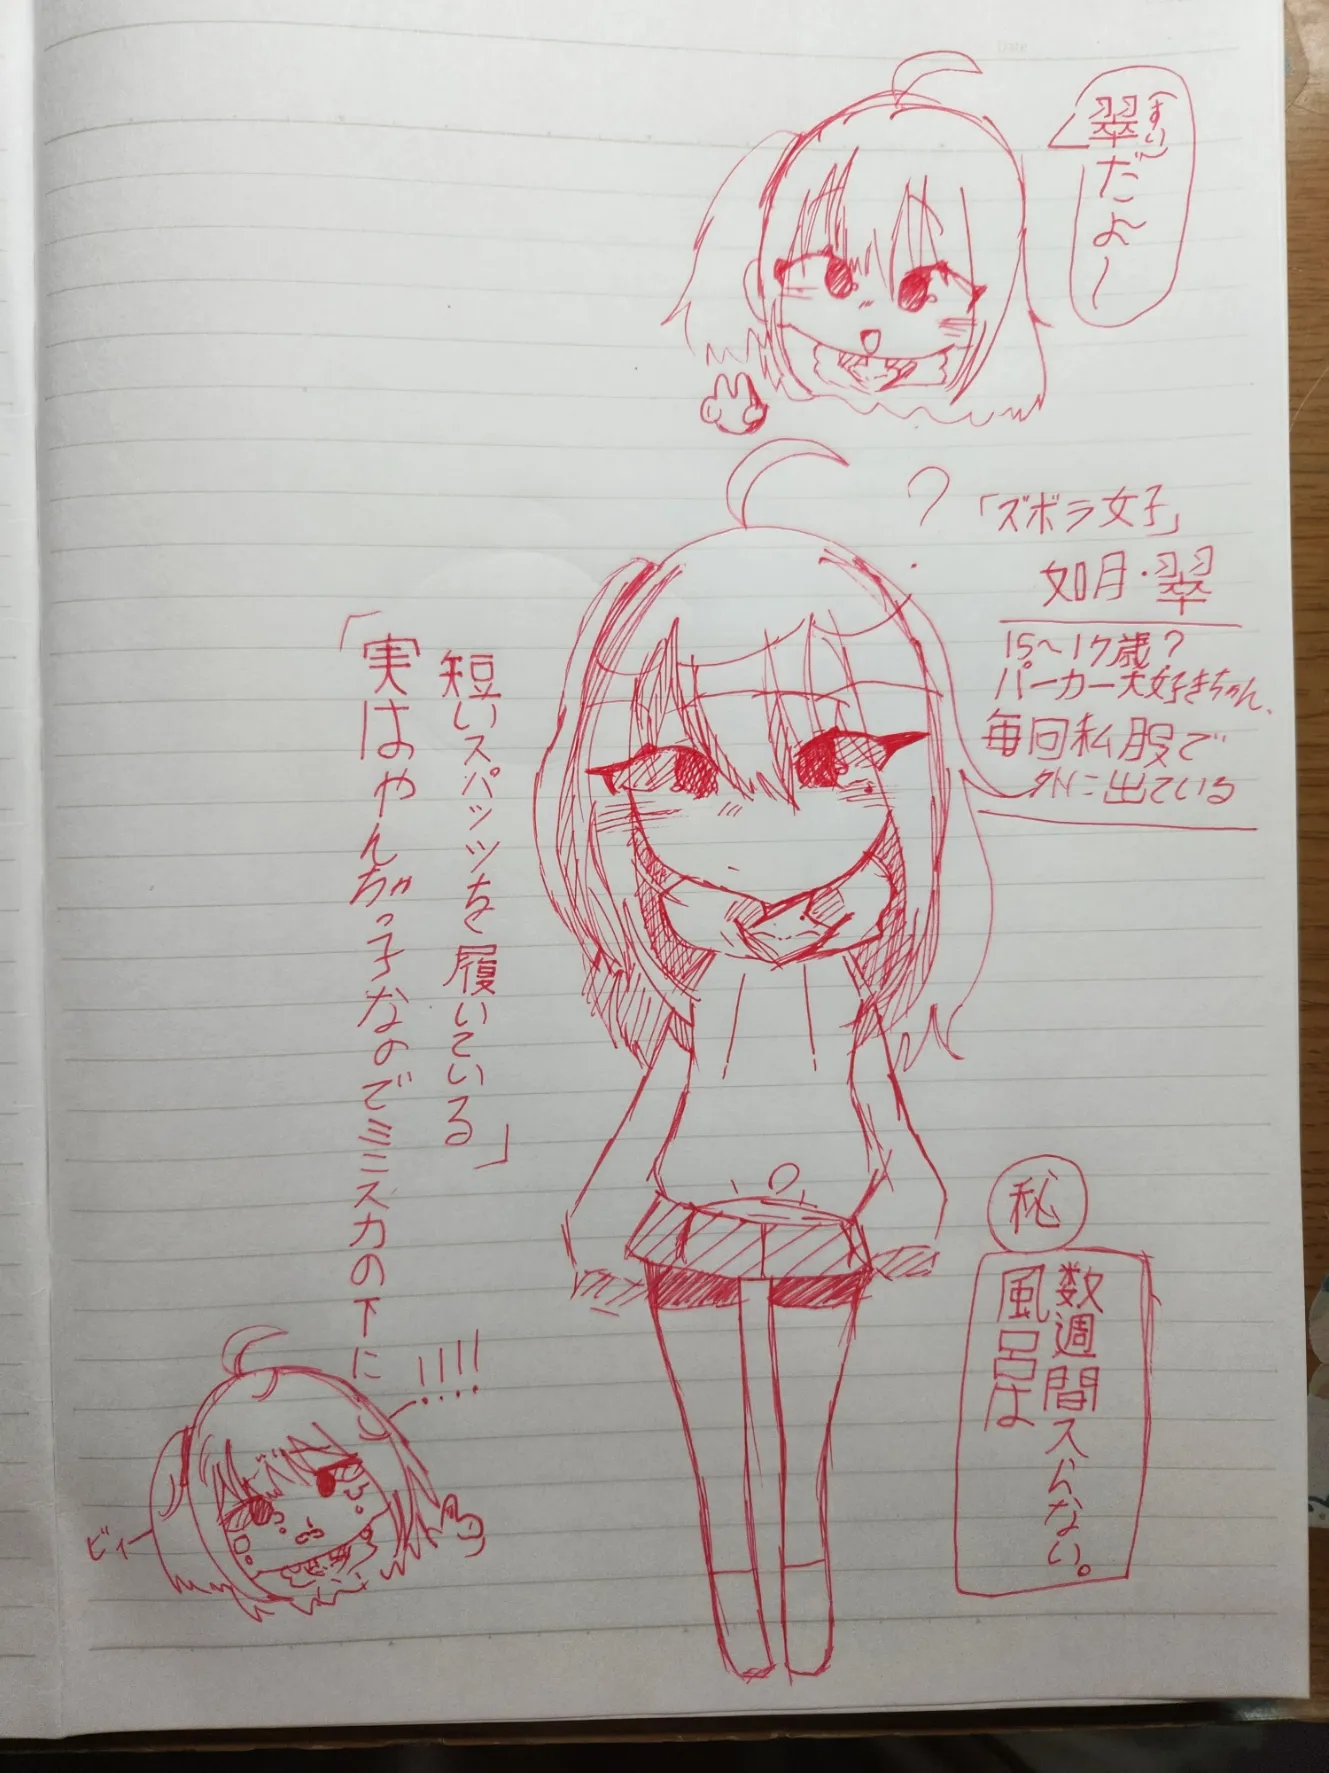 翠だよ〜
(すい)
「ズボラ女子」
如月・翠
15〜17歳?
パーカー大好きちゃん、
毎回私服で
外に出ている
?
「実はやんちゃっ子なのでミニスカの下に
短いスパッツを履いている」
秘
数週間入らない。
風呂は
!!!!
ビィー